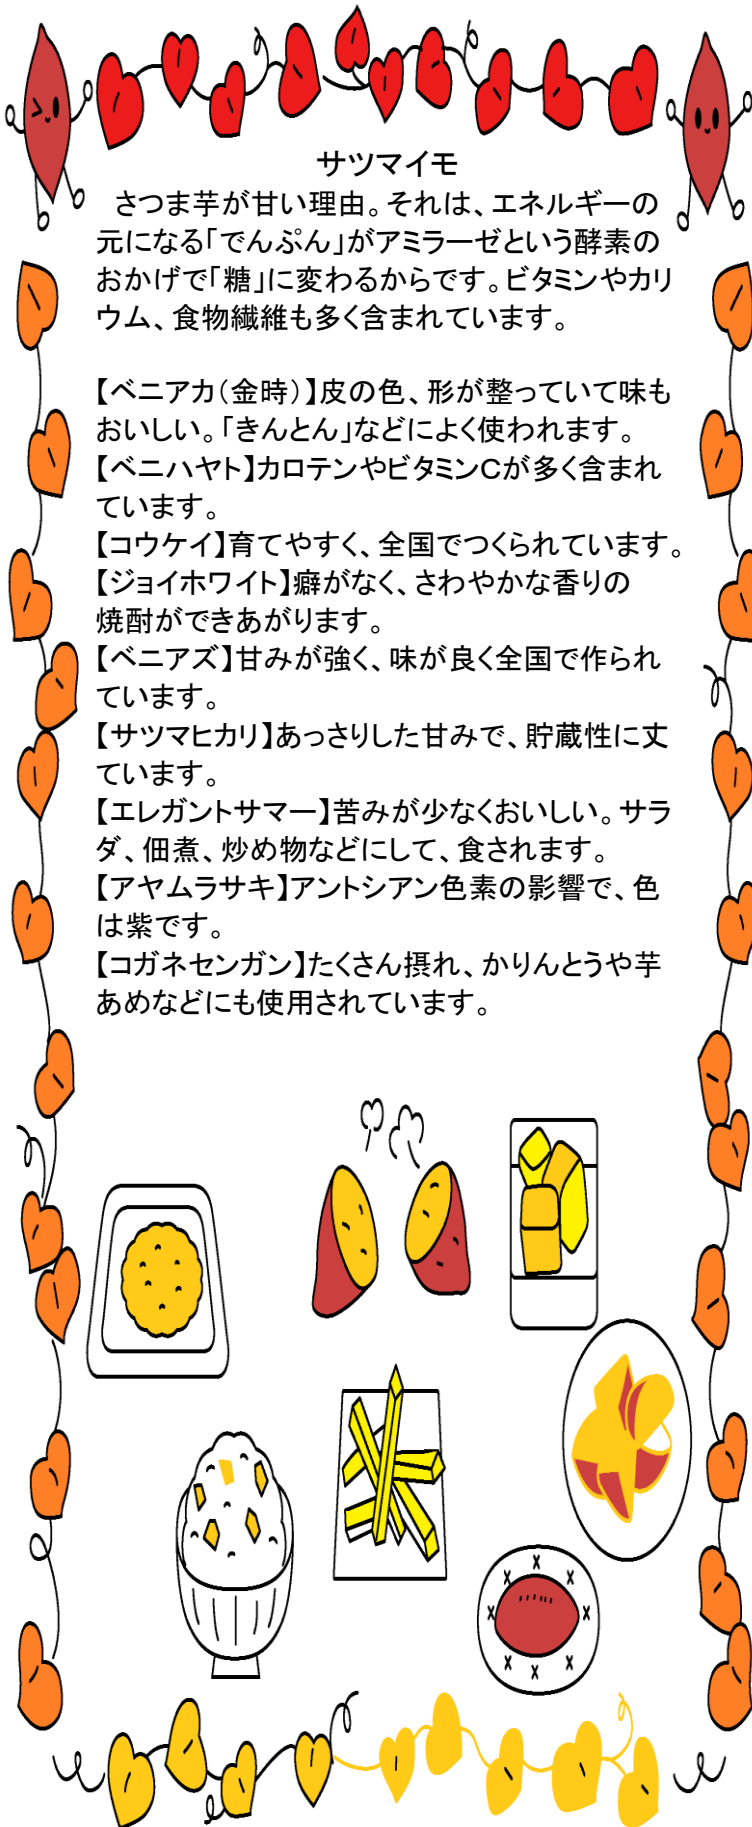 サツマイモ
さつま芋が甘い理由。それは、エネルギーの
元になる「でんぷん」がアミラーゼという酵素の
おかげで「糖」に変わるからです。ビタミンやカリ
ウム、食物繊維も多く含まれています。
【ベニアカ（金時）】皮の色、形が整っていて味も
おいしい。「きんとん」などによく使われます。
【ベニハヤト】カロテンやビタミンCが多く含まれ
ています。
【コウケイ】育てやすく、全国でつくられています。
【ジョイホワイト】癖がなく、さわやかな香りの
焼酎ができあがります。
【ベニアズ】甘みが強く、味が良く全国で作られ
ています。
【サツマヒカリ】あっさりした甘みで、貯蔵性に丈
ています。
【エレガントサマー】苦みが少なくおいしい。サラ
ダ、佃煮、炒め物などにして、食されます。
【アヤムラサキ】アントシアン色素の影響で、色
は紫です。
【コガネセンガン】たくさん摂れ、かりんとうや芋
あめなどにも使用されています。